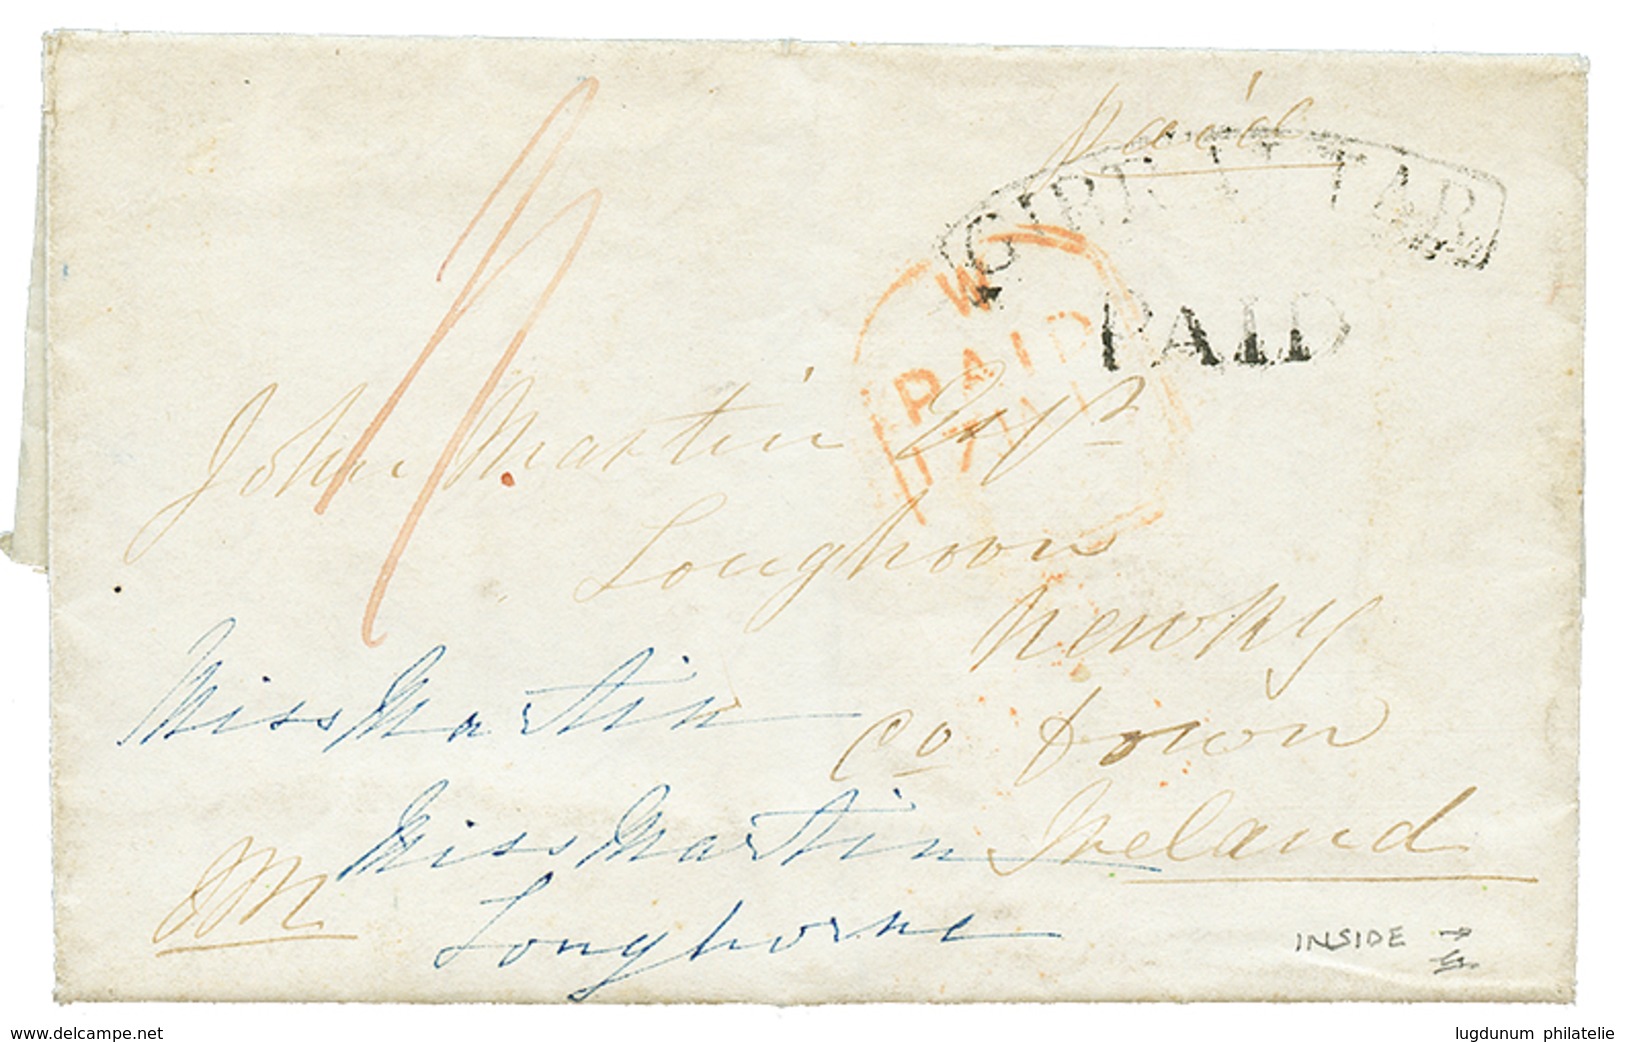 Paid
GIBRALTAR
PAID
W
PAID
17
John Martin Esqr
Loughorne
Newry
Co Down
Ireland
Miss Martin
Miss Martin
Loughorne
INSIDE
delcampe.net
lugdunum philatelie